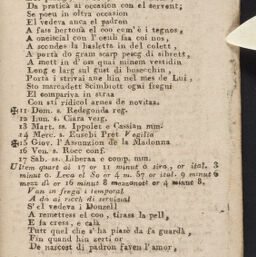 Da praticà ai occasion con el servent;
Se poeu in oltra occasion
El vedeva anca el padron
A fass bertonà el coo com'è i tegnos,
A oncisciai con l'oeuli faa coi nos,
A scondes la hasletta in del colett,
A portà do gram scarp pescg di sibrett,
A mett in d' oss quai minem vestidin
Long e larg sul gust di buscechin,
Porta i strivai ane hin nel mes de Lui,
Sto marcadett Scimbiott ogni fregui
El compariva in stras
Con stì ridicol arnes de novitaa.
✠11 Dom. s. Redegonda reg.
12 Lun. s. Ciara verg.
13 Mart. ss. Ippolet e Cassian mm.
14 Merc. s. Eusebi Pret Vegilia
✠15 Giov. l'Assunzion de la Madonna
16 Ven. s. Rocc conf.
17 Sab. ss. Liberaa e comp. mm.
Ultem quart ai 17 or 11 minut 6 sira, or ital. 3
minut 0. Leva el So or 4 m. 57 or ital. 9 minut 6
mezz dì or 16 minut 8 mezzanoot or 4 minut 8,
Van in fregui i temporal
A do ai ricch di serviziol
S'el vedeva i Donzell
A remettess el coo, tirass la pell,
E fa cress, e calà
Tutt quel che s'ha piasè da fa guardà,
Fin quand hin zerti or
De nascost di padron faven l'amor,